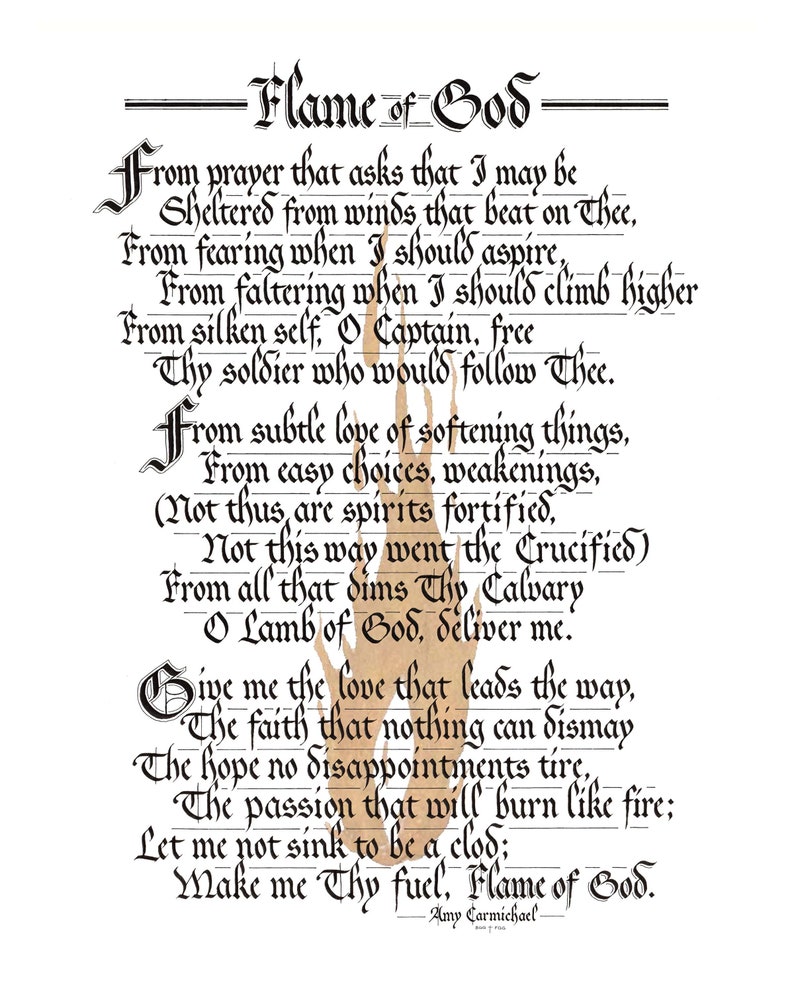 Flame of God
From prayer that asks that I may be
Sheltered from winds that beat on Thee,
From fearing when I should aspire,
From faltering when I should climb higher
From silken self, O Captain, free
Thy soldier who would follow Thee.
From subtle love of softening things,
From easy choices, weakenings,
(Not thus are spirits fortified,
Not this way went the Crucified)
From all that dims Thy Calvary
O Lamb of God, deliver me.
Give me the love that leads the way,
The faith that nothing can dismay
The hope no disappointments tire,
The passion that will burn like fire;
Let me not sink to be a clod;
Make me Thy fuel, Flame of God.
Amy Carmichael